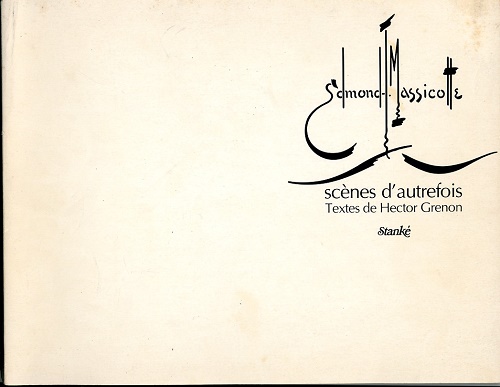 Edmond-J. Massicotte
scènes d'autrefois
Textes de Hector Grenon
Stanké